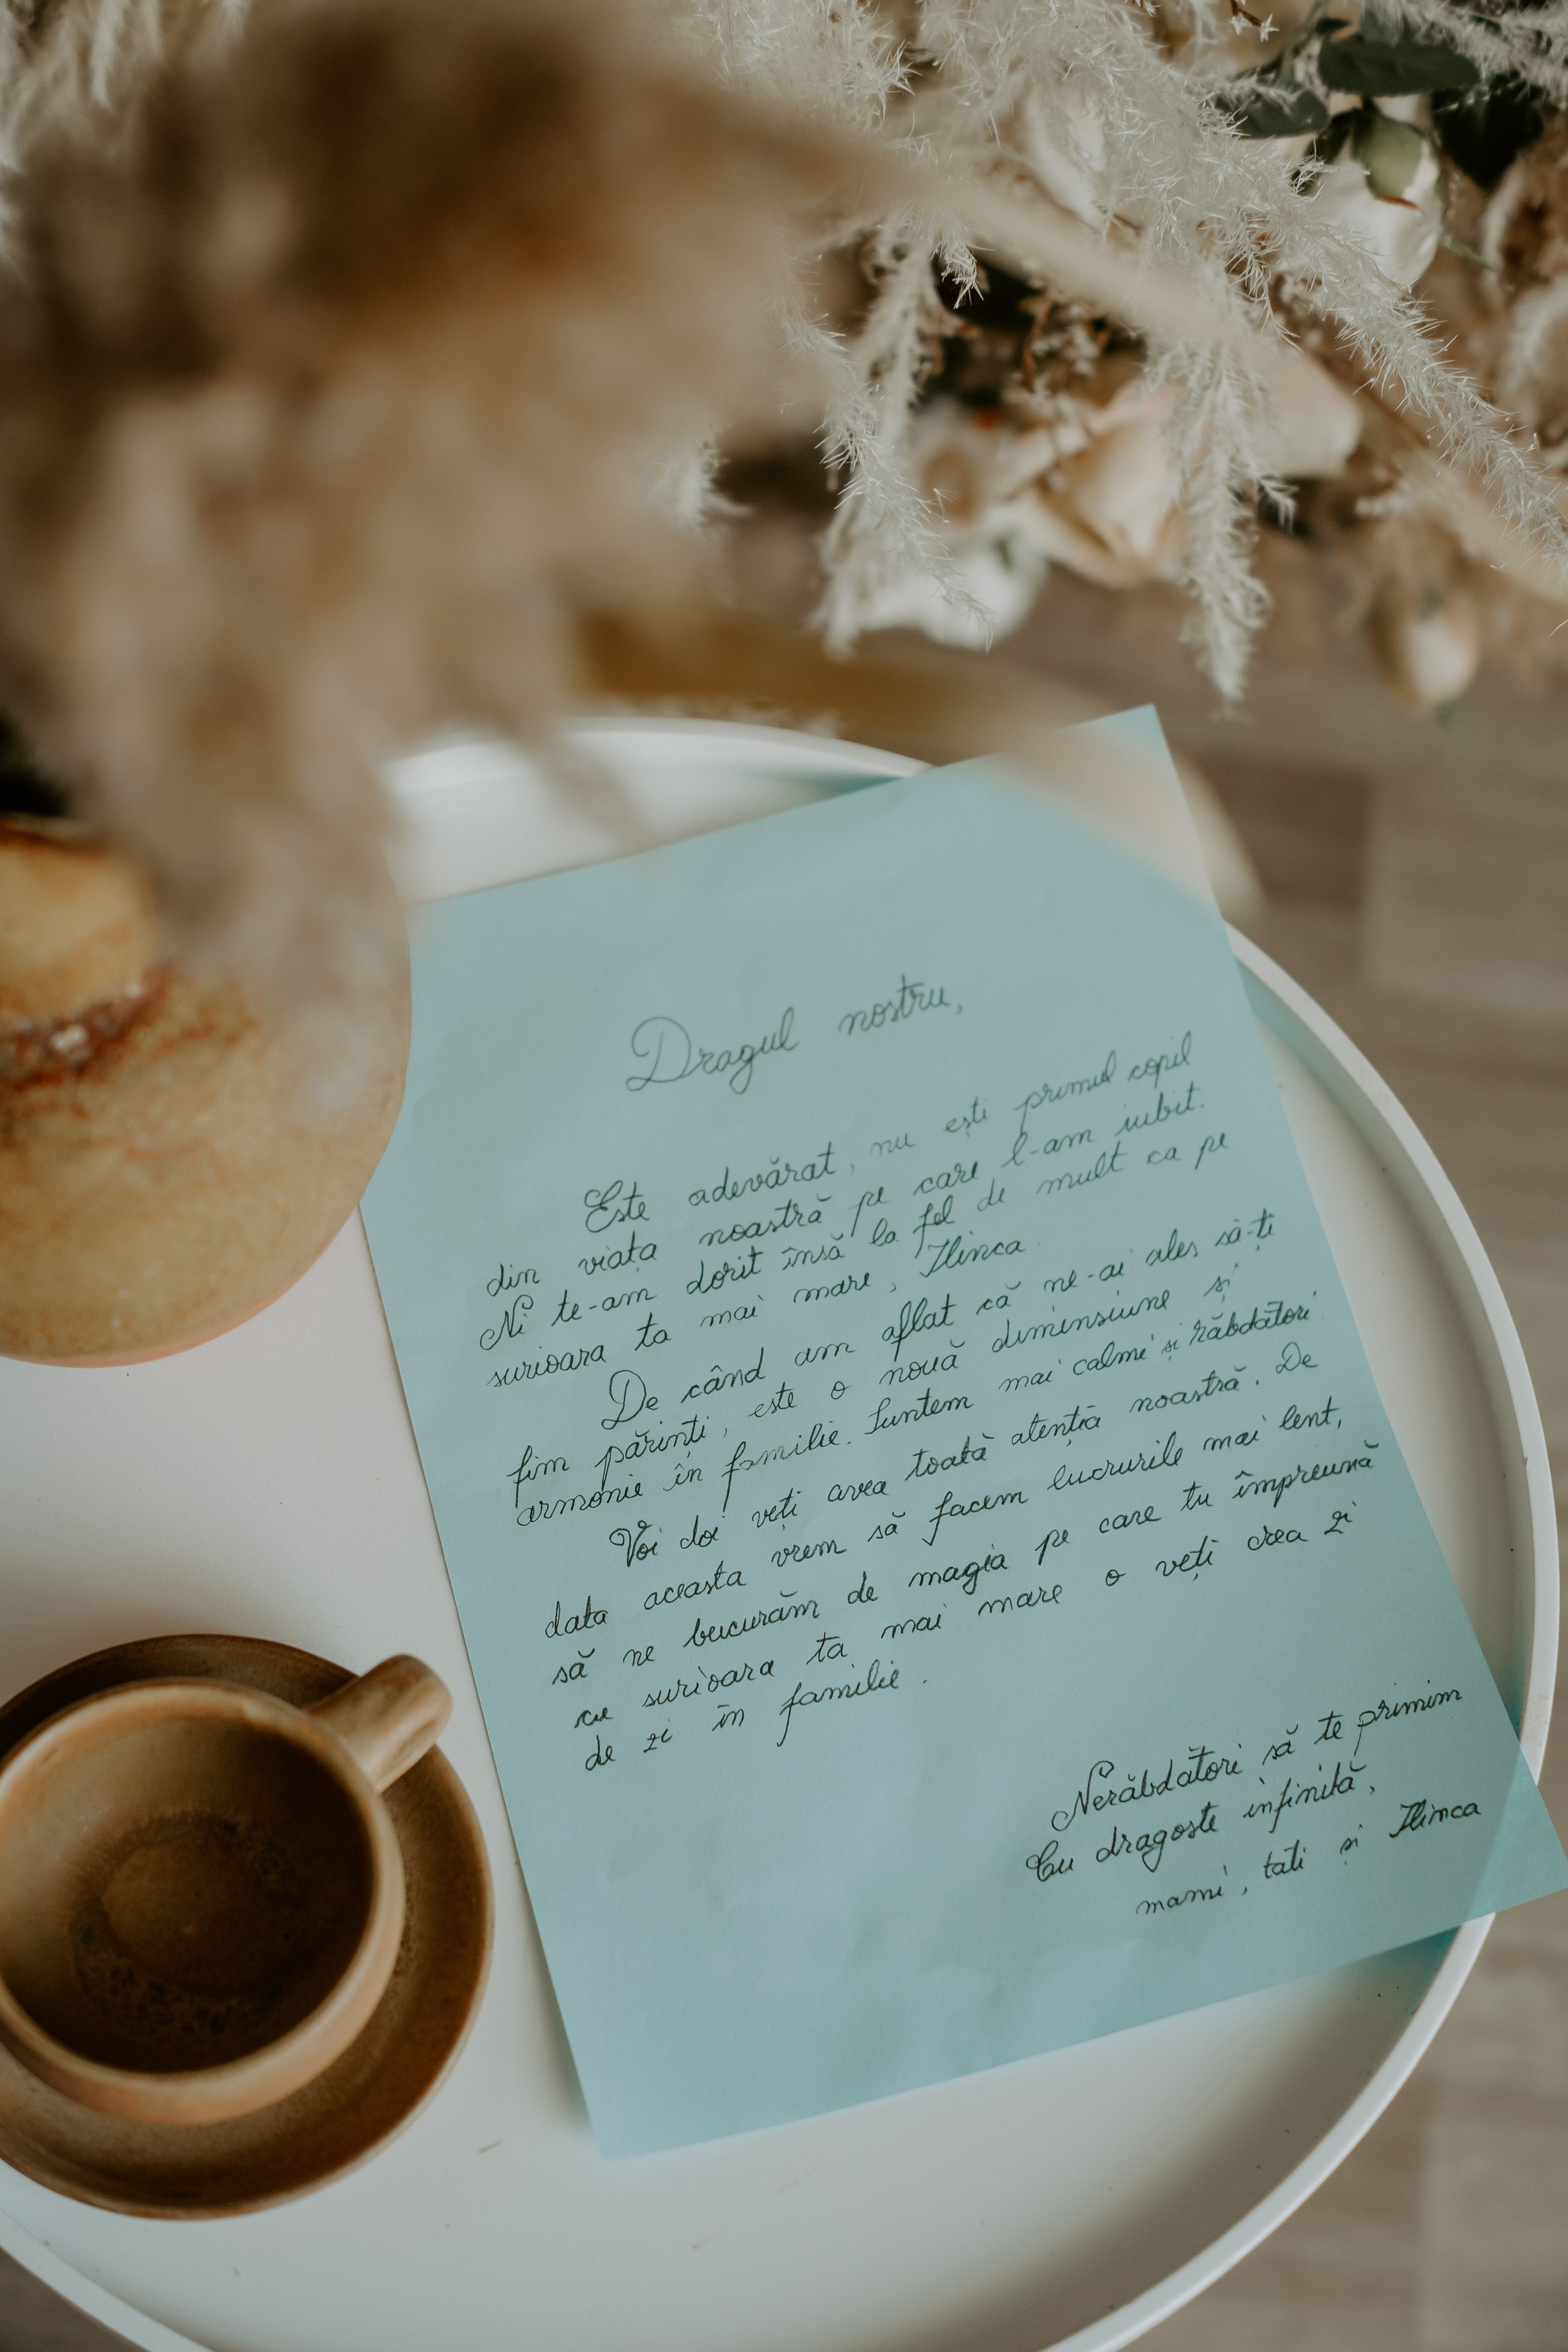 Dragul nostru,
Este adevărat, nu ești primul copil
din viața noastră pe care l-am iubit.
Ni te-am dorit însă la fel de mult ca pe
surioara ta mai mare, Ilinca.
De când am aflat că ne-ai ales să-ți
fim părinți, este o nouă dimensiune și
armonie în familie. Suntem mai calmi și răbdători.
Voi doi veți avea toată atenția noastră. De
data aceasta vrem să facem lucrurile mai lent,
să ne bucurăm de magia pe care tu împreună
cu surioara ta mai mare o veți crea zi
de zi în familie.
Nerăbdători să te primim
Cu dragoste infinită,
mami, tati și Ilinca